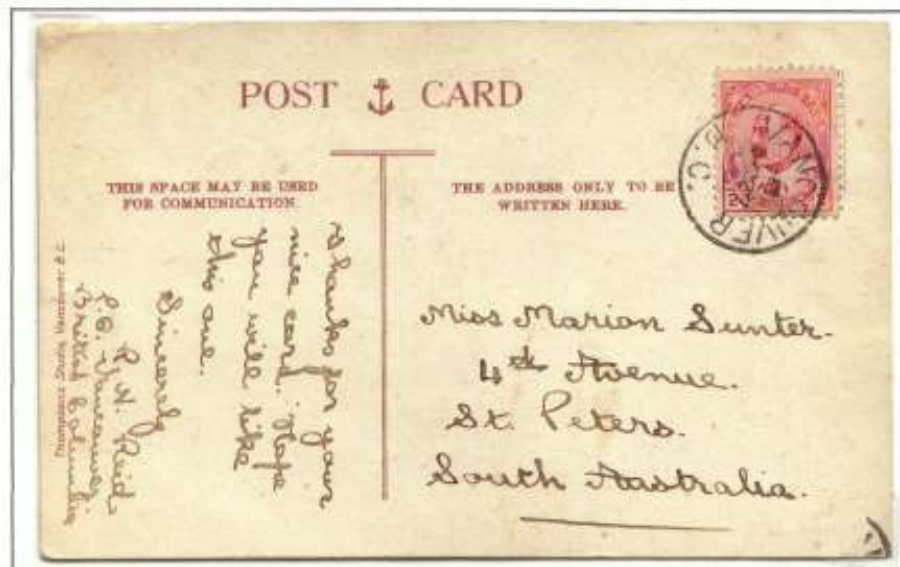 POST CARD
THIS SPACE MAY BE USED
FOR COMMUNICATION.
THE ADDRESS ONLY TO BE
WRITTEN HERE.
VANCOUVER B.C.
Thanks for your
nice card. Hope
you will like
this one.
Sincerely
R. H. Reid.
P.O. Vancouver
British Columbia
Miss Marion Sunter.
4th Avenue.
St. Peters.
South Australia.
Studio, Vancouver B.C.